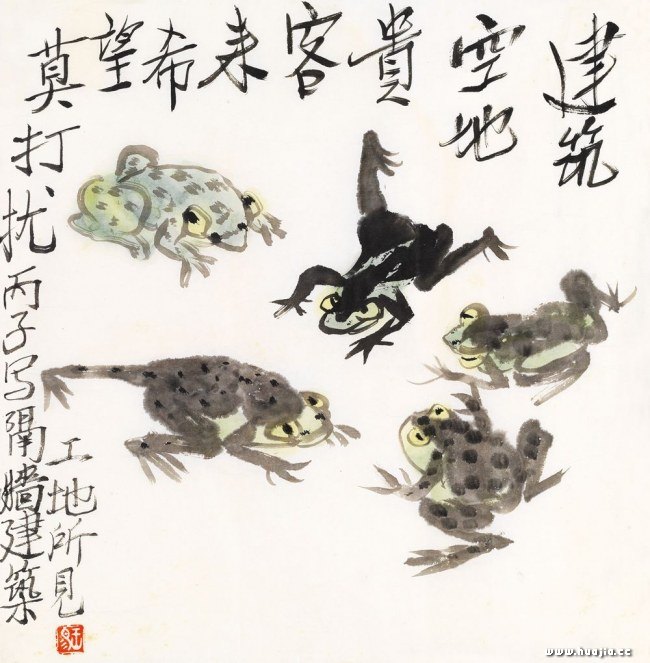 建筑
空地
貴客来希望
莫打扰丙子写隔墙建築
工地所見
www.huajia.cc